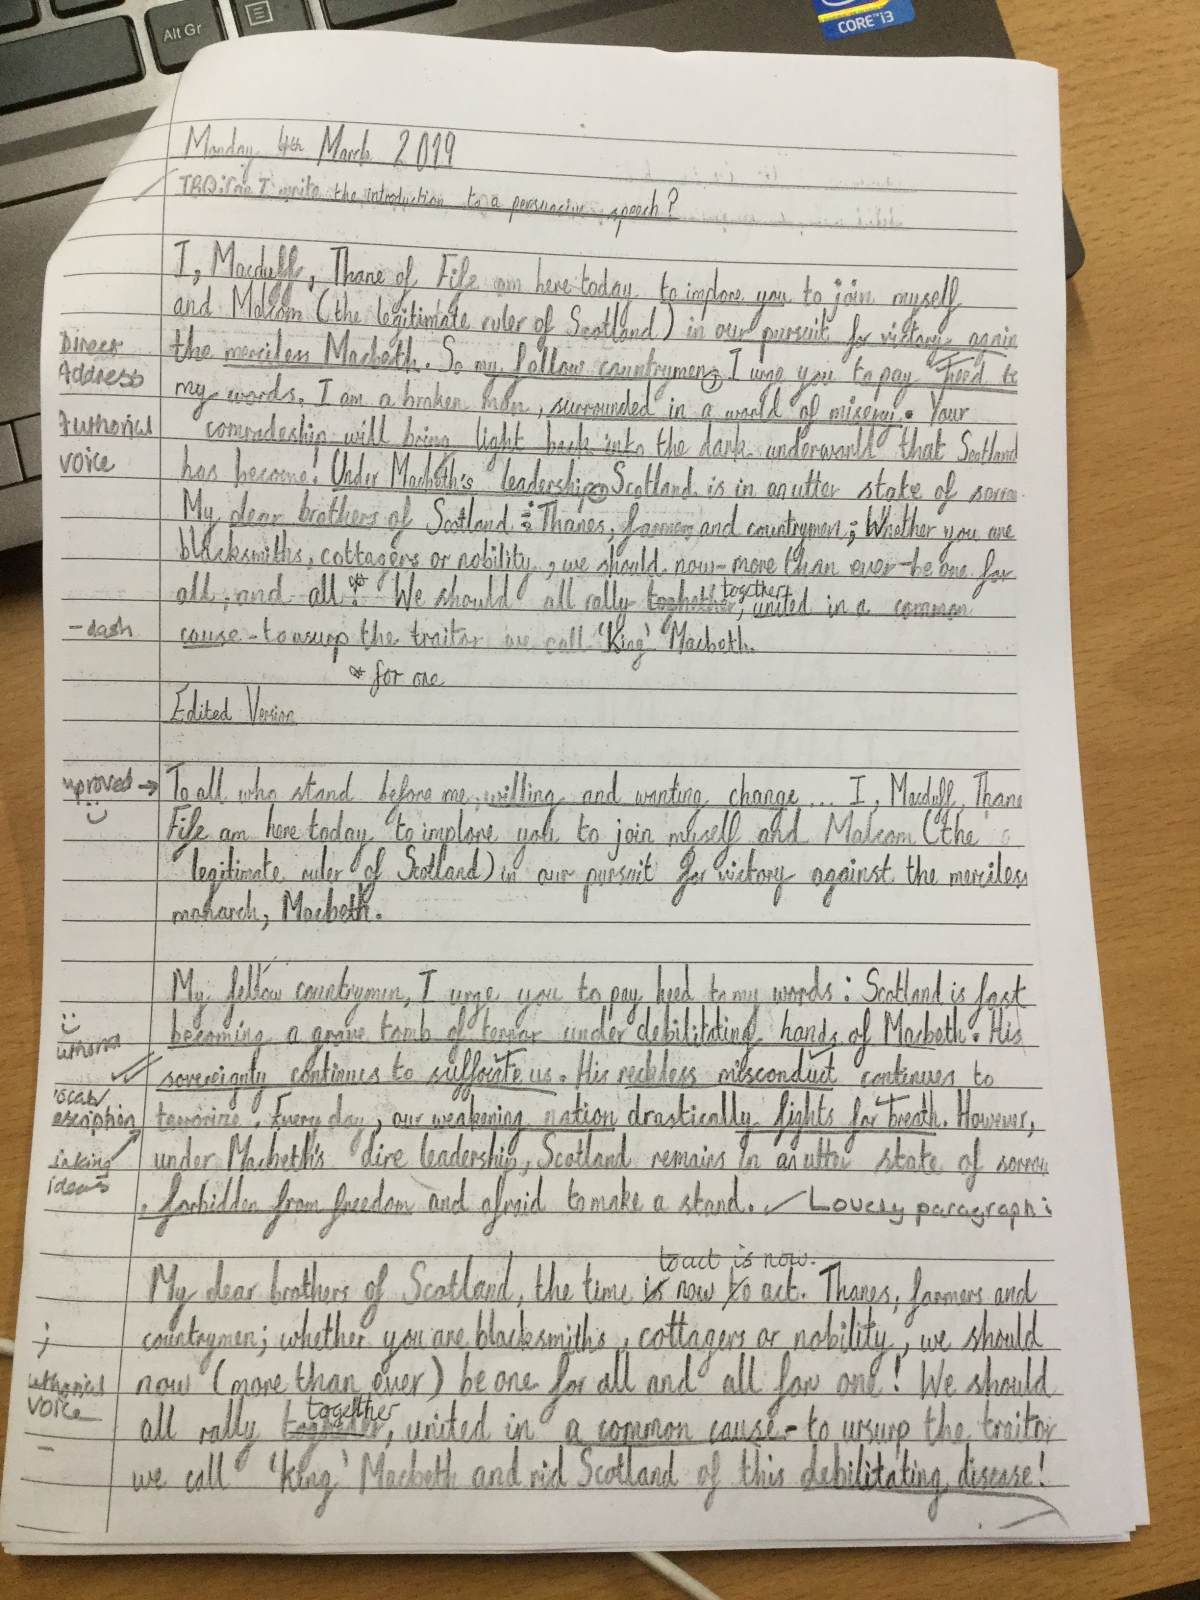 Alt Gr
CORE i3
Monday 4th March 2019
TBQ: Can I write the introduction to a persuasive speech?
I, Macduff, Thane of Fife am here today to implore you to join myself
and Malcom (the legitimate ruler of Scotland) in our pursuit for victory again
Direct
the merciless Macbeth. So my fellow countrymen, I urge you to pay heed to
Address
my words. I am a broken man, surrounded in a world of misery. Your
Authorial
comradeship will bring light back into the dark underworld that Scotland
voice
has become! Under Macbeth's leadership, Scotland is in an utter state of sorrow
My dear brothers of Scotland : Thanes, farmers and countrymen; Whether you are
blacksmiths, cottagers or nobility, we should now-more than ever-be one for
all, and all * We should all rally together, united in a common
- dash
cause - to usurp the traitor we call 'King' Macbeth.
* for one
Edited Version
mproved →
To all who stand before me, willing and wanting change... I, Macduff, Thane
Fife am here today to implore you to join myself and Malcom (the
legitimate ruler of Scotland) in our pursuit for victory against the merciless
monarch, Macbeth.
My fellow countrymen, I urge you to pay heed to my words: Scotland is fast
uthorial
becoming a grave tomb of terror under debilitating hands of Macbeth. His
sovereignty continues to suffocate us. His reckless misconduct continues to
vocab/
escription
terrorize. Every day, our weakening nation drastically fights for breath. However,
linking
under Macbeth's dire leadership, Scotland remains in an utter state of sorrow
ideas
, forbidden from freedom and afraid to make a stand. ✓ Lovely paragraph!
to act is now.
My dear brothers of Scotland, the time is now to act. Thanes, farmers and
;
countrymen; whether you are blacksmiths, cottagers or nobility, we should
uthorial
now (more than ever) be one for all and all for one! We should
voice
together
all rally together, united in a common cause - to usurp the traitor
–
we call 'King' Macbeth and rid Scotland of this debilitating disease!